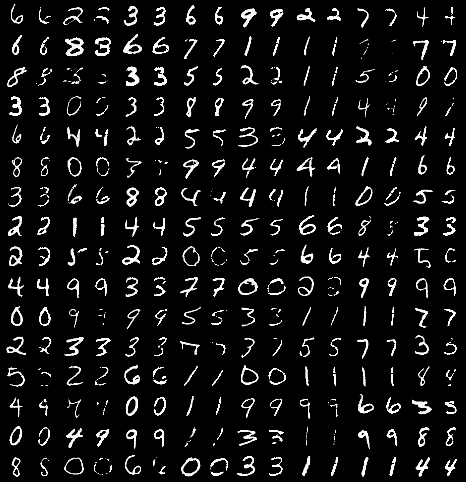 6 6 2 2 3 3 6 6 9 9 2 2 7 7 4 4
6 6 8 3 6 6 7 7 1 1 1 1 7 7
8 8 3 3 5 5 2 2 1 1 5 5 0 0
3 3 0 0 3 3 8 8 9 9 1 1 4 4 9 1
6 6 4 4 2 2 5 5 3 3 4 4 2 2 4 4
8 8 0 0 3 9 9 4 4 4 4 1 1 6 6
3 3 6 6 8 8 4 4 4 1 1 0 0 5 5
2 2 1 1 4 4 5 5 5 5 6 6 8 8 3 3
2 2 5 5 2 2 0 0 5 5 6 6 4 4 5
4 4 9 9 3 3 7 7 0 0 2 2 9 9 9 9
0 0 9 9 9 9 5 5 3 3 1 1 1 1 7 7
2 2 3 3 3 3 7 7 3 7 5 5 7 7 3 5
5 2 2 6 6 1 1 0 0 1 1 1 1 8 8
4 4 7 0 0 1 1 9 9 9 9 6 6 3 3
0 0 4 9 9 9 1 1 3 3 1 1 9 9 8 8
8 8 0 0 6 0 0 3 3 1 1 1 1 4 4